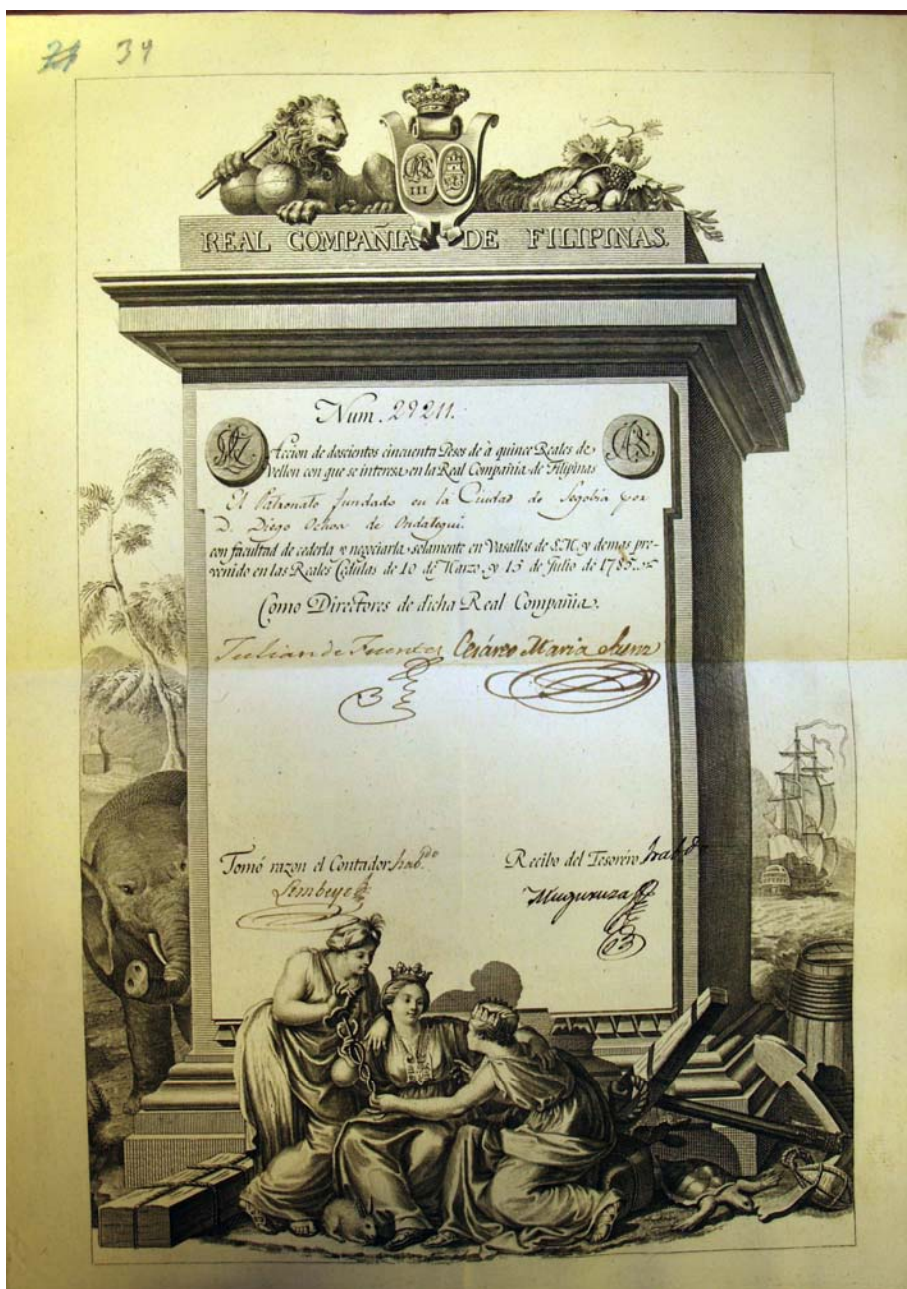 34
REAL COMPAÑIA DE FILIPINAS.
III
Num. 29211.
Accion de doscientos cincuenta Pesos de à quince Reales de
Vellon con que se interesa en la Real Compañia de Filipinas
El Patronato fundado en la Ciudad de Segobia por
D. Diego Ochoa de Ondategui.
con facultad de cederla ò negociarla solamente en Vasallos de S.M. y demas pre-
venido en las Reales Cedulas de 10 de Marzo, y 15 de Julio de 1785.
Como Directores de dicha Real Compañia.
Julian de Fuentes Cesáreo Maria
Tomó razon el Contador hab.do
Recibo del Tesorero
Lembeye
Muguruza